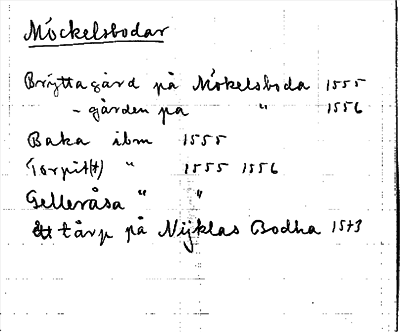 Möckelsbodar
Bryttagård på Mökelsboda 1555
- gården på " 1556
Baka ibm 1555
Torpit(t) " 1555 1556
Gelleråsa " "
tårp på Nijklas Bodha 1573